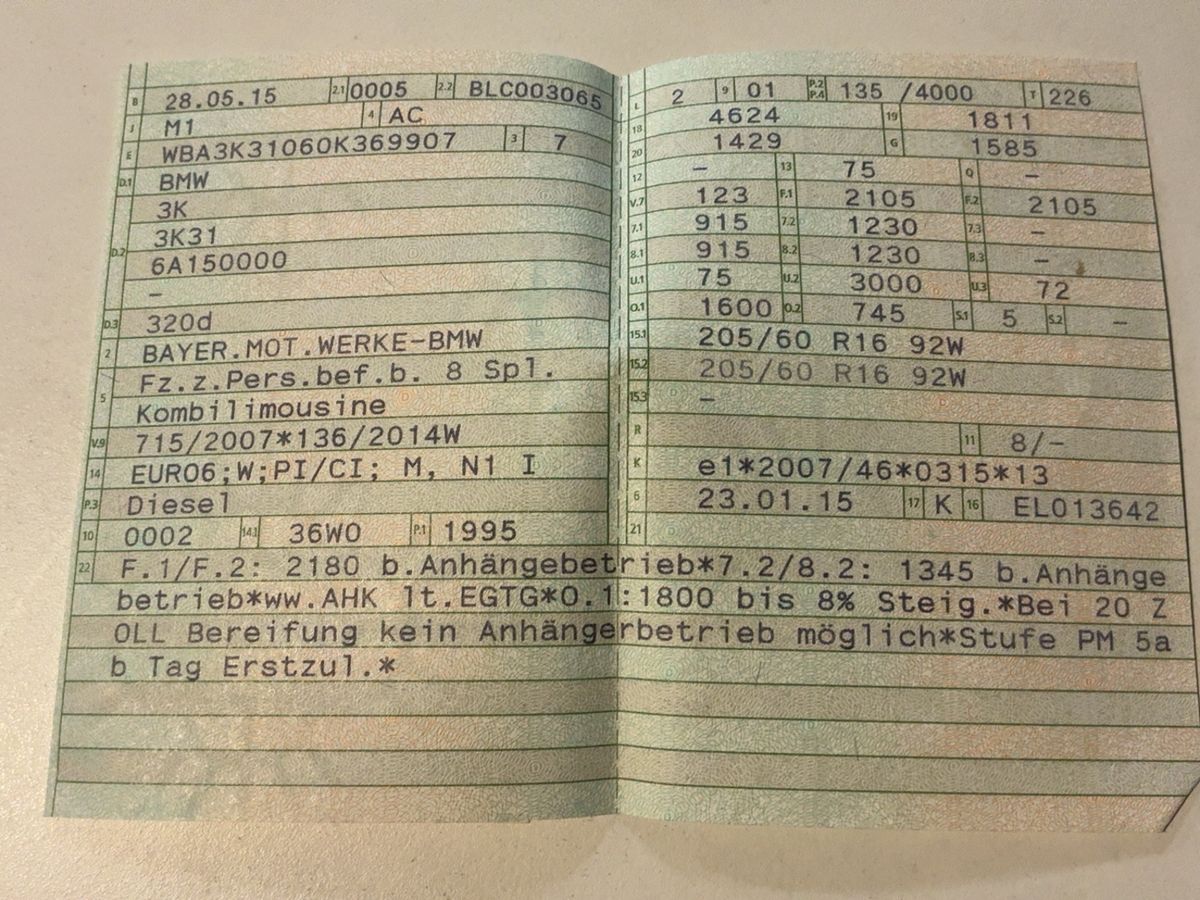 B 28.05.15 2.1 0005 2.2 BLC003065
J M1 4 AC
E WBA3K31060K369907 3 7
D.1 BMW
3K
D.2 3K31
6A150000
–
D.3 320d
2 BAYER.MOT.WERKE-BMW
5 Fz.z.Pers.bef.b. 8 Spl.
Kombilimousine
V.9 715/2007*136/2014W
14 EURO6;W;PI/CI; M, N1 I
P.3 Diesel
10 0002 14.1 36W0 P.1 1995
L 2 9 01 P.2 P.4 135 /4000 T 226
18 4624 19 1811
20 1429 G 1585
12 – 13 75 Q –
V.7 123 F.1 2105 F.2 2105
7.1 915 7.2 1230 7.3 –
8.1 915 8.2 1230 8.3 –
U.1 75 U.2 3000 U.3 72
O.1 1600 O.2 745 S.1 5 S.2 –
15.1 205/60 R16 92W
15.2 205/60 R16 92W
15.3 –
R 11 8/–
K e1*2007/46*0315*13
6 23.01.15 17 K 16 EL013642
21
22 F.1/F.2: 2180 b.Anhängebetrieb*7.2/8.2: 1345 b.Anhänge
betrieb*ww.AHK lt.EGTG*O.1:1800 bis 8% Steig.*Bei 20 Z
OLL Bereifung kein Anhängerbetrieb möglich*Stufe PM 5a
b Tag Erstzul.*